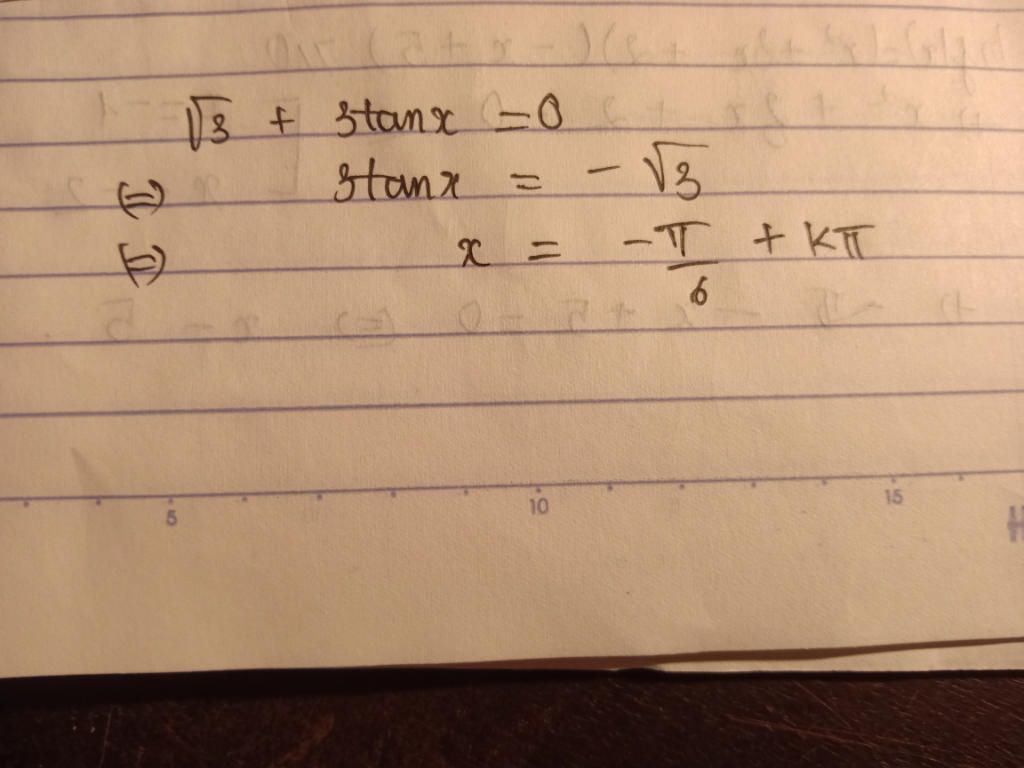 √3 + 3tanx = 0
⇔ 3tanx = - √3
⇔ x = -π/6 + kπ
5 10 15